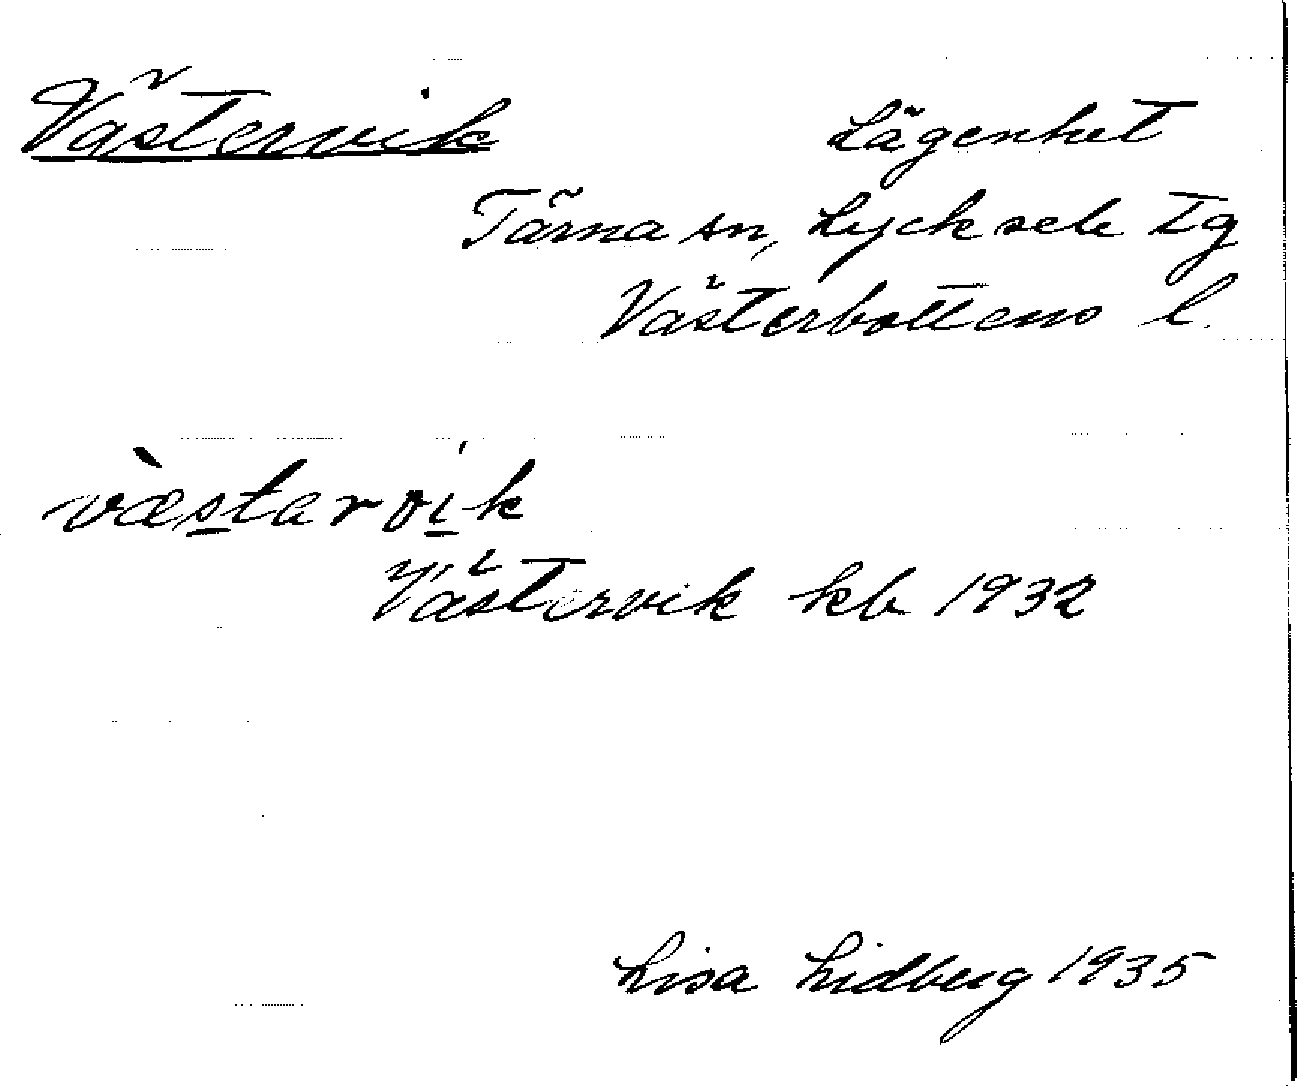 Västervik Lägenhet
Tärna sn, Lycksele tg
Västerbottens l.
væ̀starvik
Västervik kb 1932
Lisa Lidberg 1935